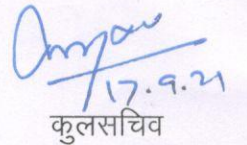 17.9.21
कुलसचिव